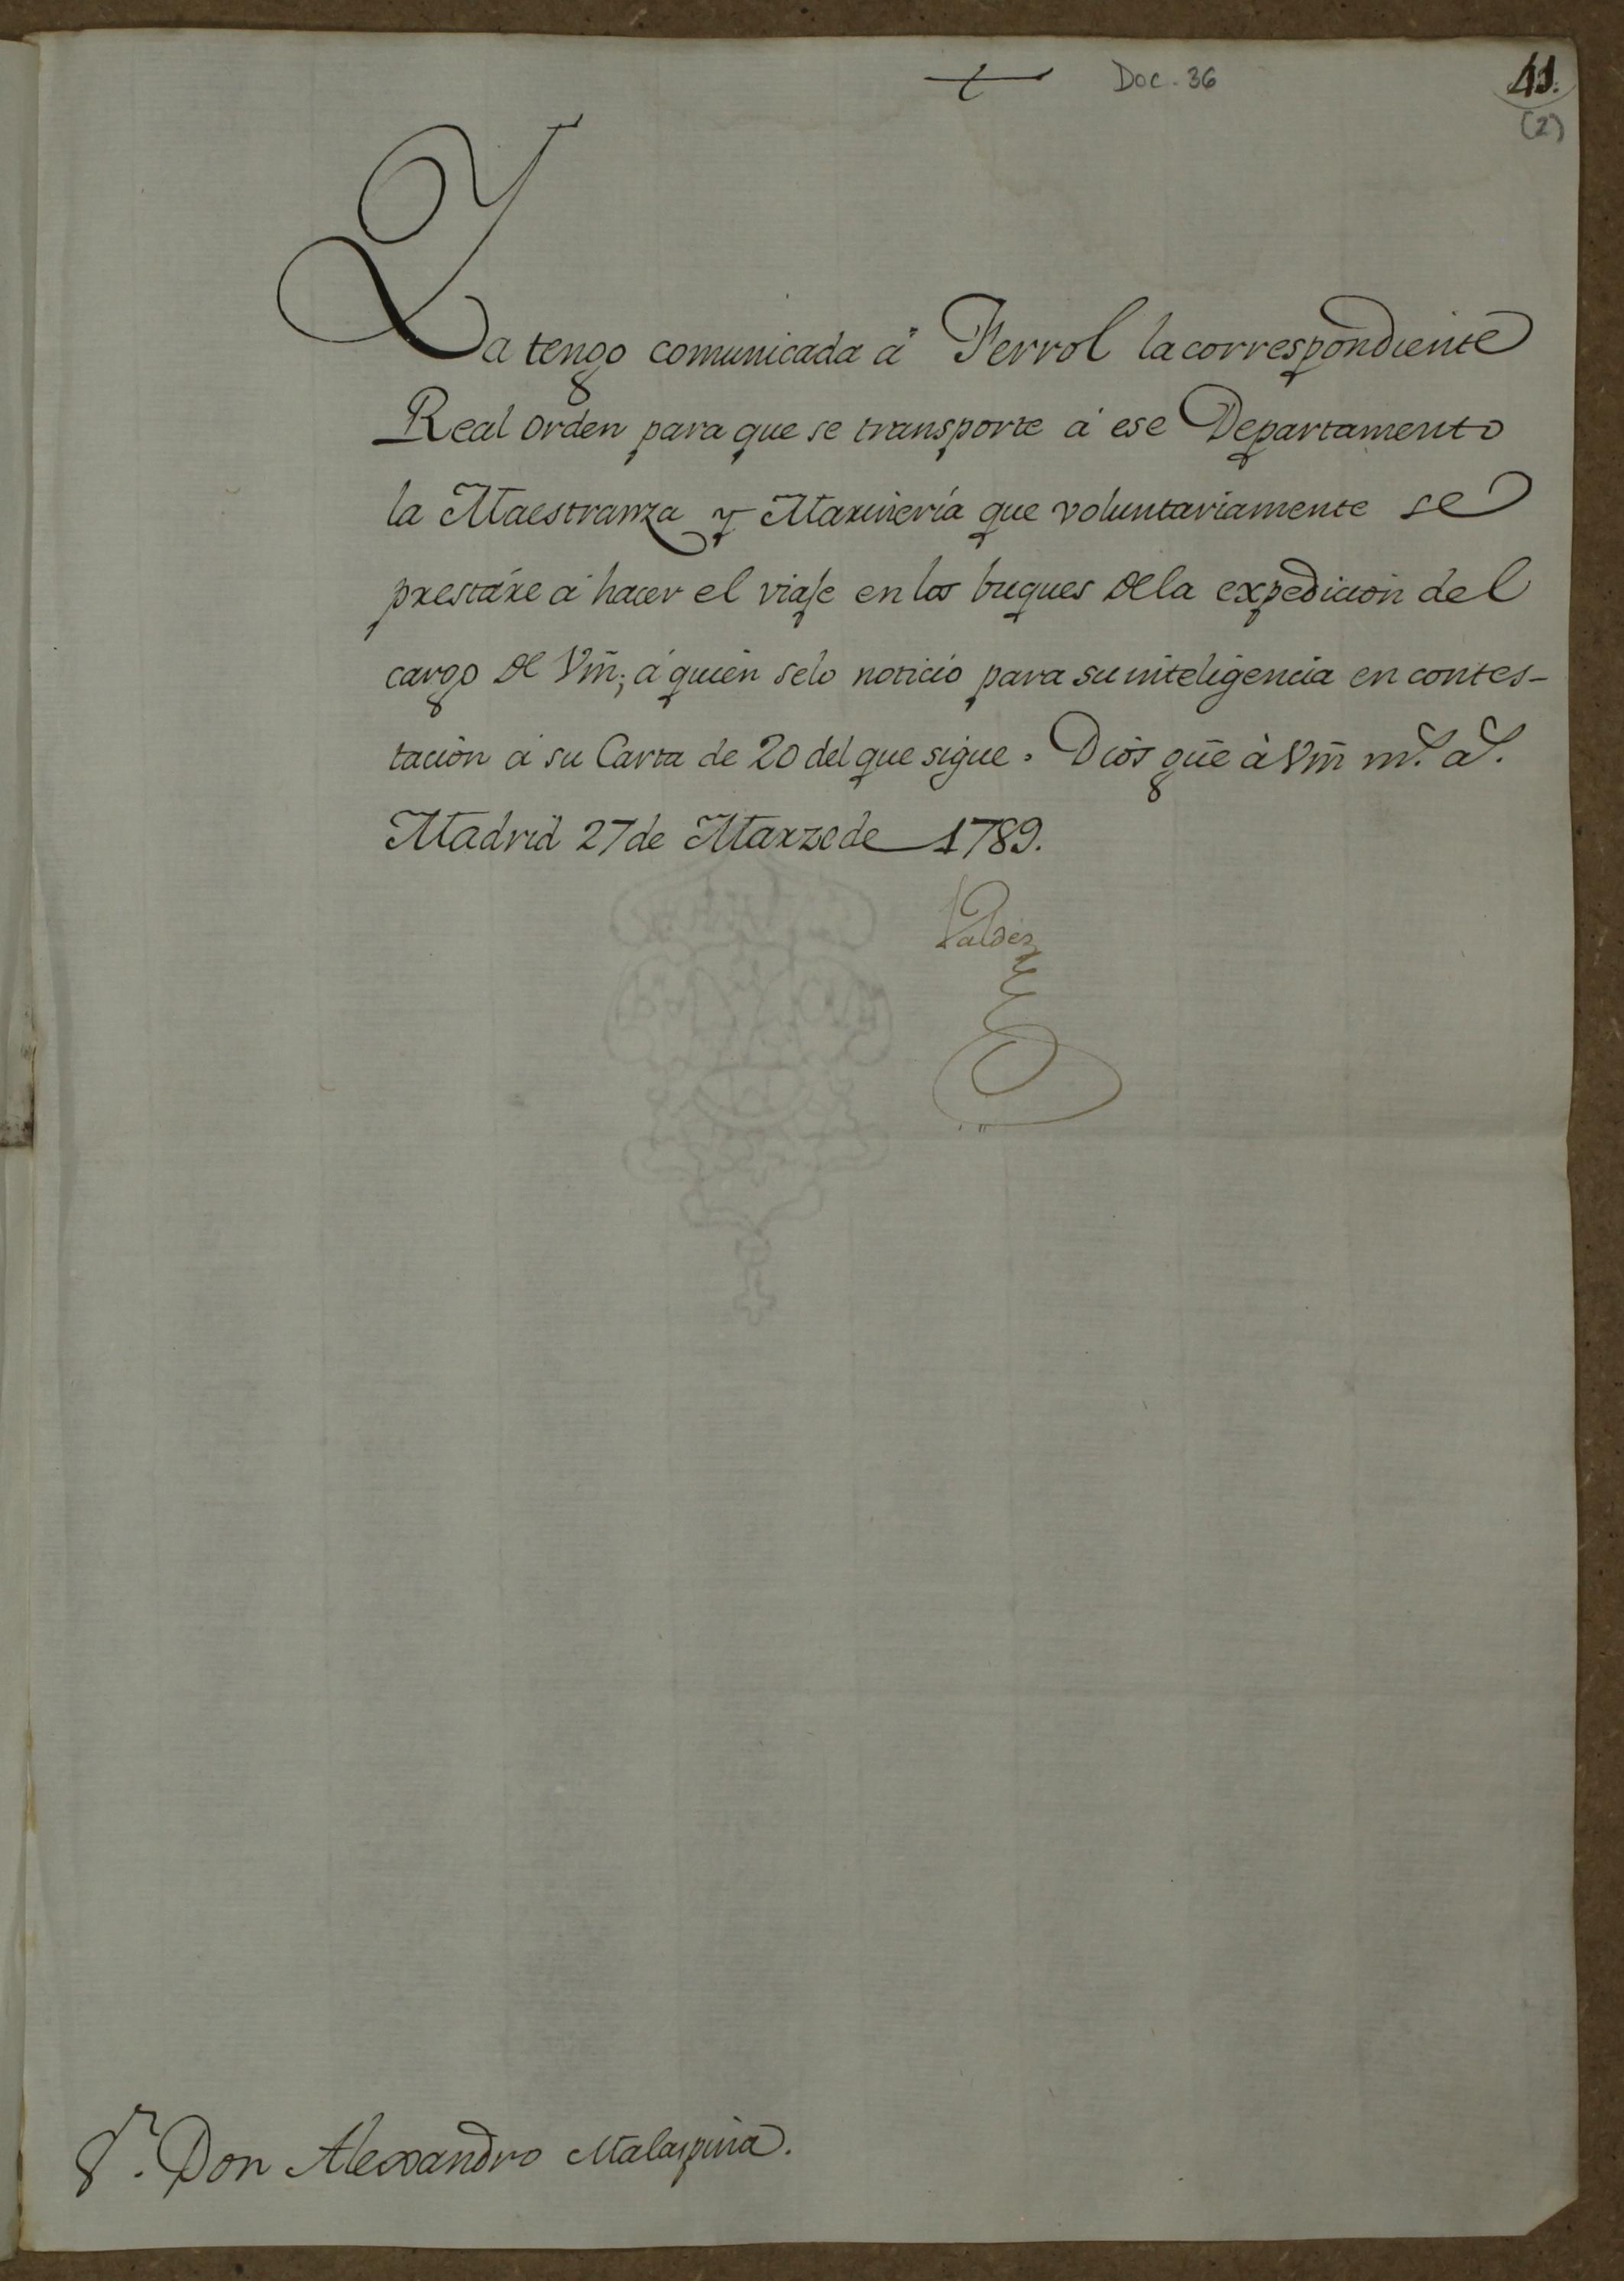 Doc. 36
41.
(2)
Ya tengo comunicada á Ferrol la correspondiente
Real orden para que se transporte á ese Departamento
la Maestranza y Marinería que voluntariamente se
prestáre á hacer el viaje en los buques de la expedicion del
cargo de Vm̃; á quien selo noticio para su inteligencia en contes-
tacion á su Carta de 20 del que sigue. Dios gũe à Vm̃ m.s a.s
Madrid 27 de Marzo de 1789.
Valdés
S.r Don Alexandro Malaspina.